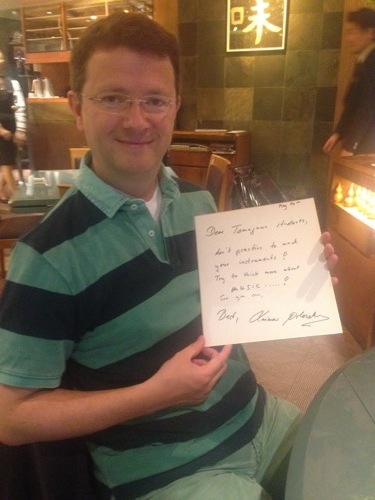 味
May
Dear Tamagawa students,
don't practice so much
your instruments!
Try to think more about
MUSIC .....!
See you on,
Best,